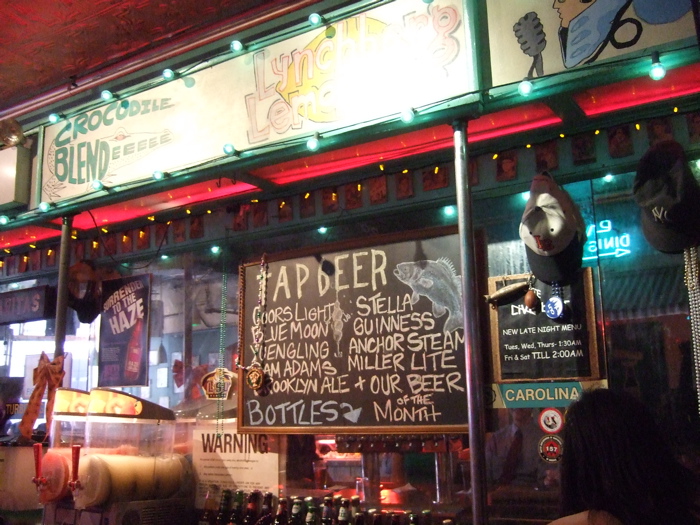 CROCODILE
BLENDEEEEEE
Lynchburg
TAP BEER
COORS LIGHT
BLUE MOON
YUENGLING
SAM ADAMS
BROOKLYN ALE
STELLA
GUINNESS
ANCHOR STEAM
MILLER LITE
+ OUR BEER
OF THE
MONTH
BOTTLES
SURRENDER
TO THE
HAZE
NEW LATE NIGHT MENU
Tues, Wed, Thurs- 1:30AM
Fri & Sat TILL 2:00AM
CAROLINA
WARNING
NY
157